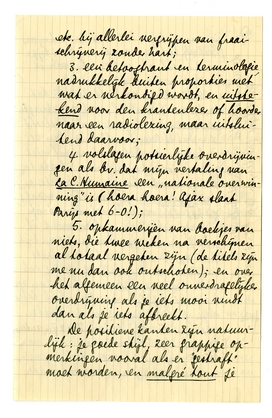 etc. bij allerlei vergrijpen van fraai-
schrijverij zonder hart;
3. een betoogtrant en terminologie
nadrukkelijk buiten proporties met
wat er verkondigd wordt, en uitste-
kend voor den krantenlezer of hoorder
naar een radiolezing, maar uitslui-
tend daarvoor;
4. volslagen potsierlijke overdrijvin-
gen als bv. dat mijn vertaling van
La C. Humaine een „nationale overwin-
ning" is (hoera hoera! Ajax slaat
Parijs met 6-0!);
5. opkammerijen van boekjes van
niets, die twee weken na verschijnen
al totaal vergeten zijn (de titels zijn
me nu dan ook ontschoten); en over
het algemeen een veel onverdragelijker
overdrijving als je iets mooi vindt
dan als je iets afbreekt.
De positieve kanten zijn natuur-
lijk: je goede stijl, zeer grappige op-
merkingen vooral als er „gestraft"
moet worden, en malgré tout je